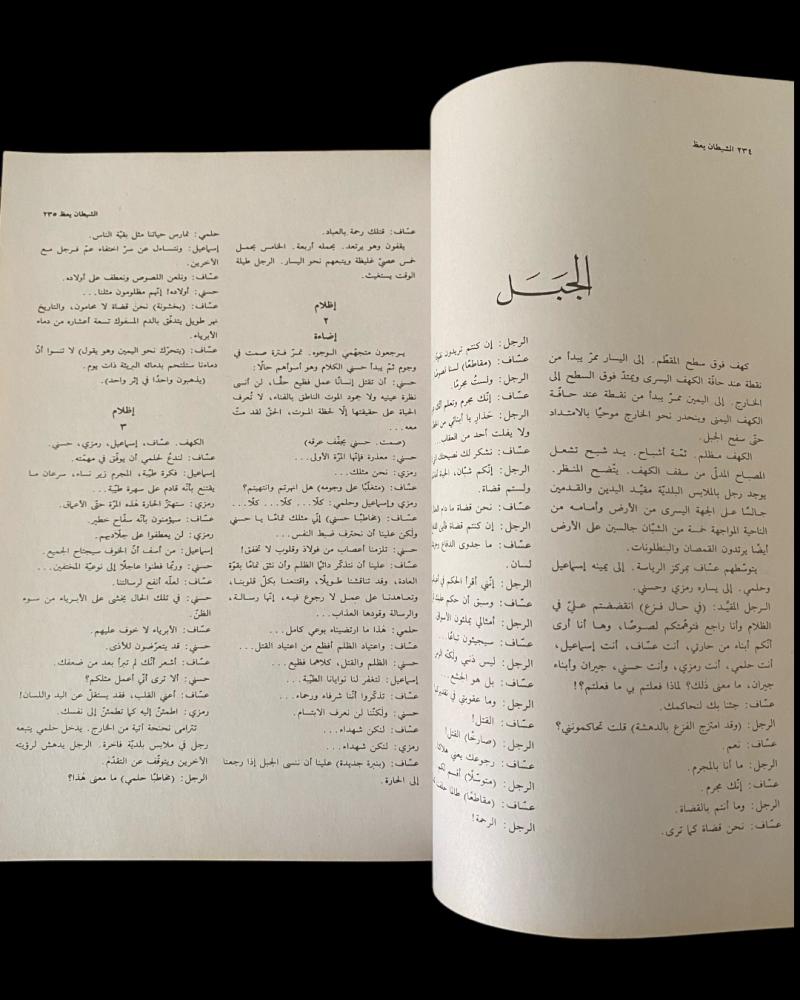 ٢٣٤ الشيطان يعظ
الجَبَل
كهف فوق سطح المقطّم. إلى اليسار ممرّ يبدأ من
نقطة عند حافّة الكهف اليسرى ويمتدّ فوق السطح إلى
الخارج. إلى اليمين ممرّ يبدأ من نقطة عند حافّة
الكهف اليمنى وينحدر نحو الخارج موحيًا بالامتداد
حتّى سفح الجبل.
الكهف مظلم. ثمّة أشباح. يد شبح تشعل
المصباح المدلّى من سقف الكهف. يتّضح المنظر.
يوجد رجل بالملابس البلديّة مقيّد اليدين والقدمين
جالسًا على الجهة اليسرى من الأرض وأمامه من
الناحية المواجهة خمسة من الشبّان جالسين على الأرض
أيضًا يرتدون القمصان والبنطلونات.
يتوسّطهم عسّاف بمركز الرياسة. إلى يمينه إسماعيل
وحلمي. إلى يساره رمزي وحسني.
الرجل المقيّد: (في حال فزع) انقضضتم عليّ في
الظلام وأنا راجع فتوهّمتكم لصوصًا، وها أنا أرى
أنّكم أبناء من حارتي، أنت عسّاف، أنت إسماعيل،
أنت حلمي، أنت رمزي، وأنت حسني، جيران وأبناء
جيران، ما معنى ذلك؟ لماذا فعلتم بي ما فعلتم؟!
عسّاف: جئنا بك لنحاكمك.
الرجل: (وقد امتزج الفزع بالدهشة) قلت تحاكمونني؟
عسّاف: نعم.
الرجل: ما أنا بالمجرم.
عسّاف: إنّك مجرم.
الرجل: وما أنتم بالقضاة.
عسّاف: نحن قضاة كما ترى.
الرجل: إن كنتم تريدون
عسّاف: (مقاطعًا) لسنا
الرجل: ولستُ مجرمًا.
عسّاف: إنّك مجرم وتعلم
الرجل: حذارِ يا أبنائي من
ولا يفلت أحد من العقاب.
عسّاف: نشكر لك نصيحتك
الرجل: إنّكم شبّان،
ولستم قضاة.
عسّاف: نحن قضاة ما دام
الرجل: إن كنتم قضاة
عسّاف: ما جدوى الدفاع
لسان.
الرجل: إنّني أقرأ الحكم في
عسّاف: وسبق أن حكم
الرجل: أمثالي يملئون الأسواق
عسّاف: سيجيئون تباعًا
الرجل: ليس ذنبي ولكنّه
عسّاف: بل هو الجشع
الرجل: وما عقوبتي في
عسّاف: القتل!
الرجل: (صارخًا) القتل!
عسّاف: رجوعك يعني
الرجل: (متوسّلًا) أقسم لكم
عسّاف: (مقاطعًا) طالما
الرجل: الرحمة!
الشيطان يعظ ٢٣٥
عسّاف: قتلك رحمة بالعباد.
يقفون وهو يرتعد. يحمله أربعة. الخامس يحمل
خمس عصيّ غليظة ويتبعهم نحو اليسار. الرجل طيلة
الوقت يستغيث.
إظلام
٢
إضاءة
يرجعون متجهّمي الوجوه. تمرّ فترة صمت في
وجوم ثمّ يبدأ حسني الكلام وهو أسوأهم حالًا:
حسني: أن تقتل إنسانًا عمل فظيع حقًّا، لن أنسى
نظرة عينيه ولا جمود الموت الناطق بالفناء، لا تُعرف
الحياة على حقيقتها إلّا لحظة الموت، الحقّ لقد متّ
معه...
(صمت. حسني يجفّف عرقه)
حسني: معذرة فإنّها المرّة الأولى...
رمزي: نحن مثلك...
عسّاف: (متغلّبًا على وجومه) هل انهرتم وانتهيتم؟
رمزي وإسماعيل وحلمي: كلّا... كلّا... كلّا...
عسّاف: (مخاطبًا حسني) إنّي مثلك تمامًا يا حسني
ولكن علينا أن نحترف ضبط النفس...
حسني: تلزمنا أعصاب من فولاذ وقلوب لا تخفق!
عسّاف: علينا أن نتذكّر دائمًا الظلم وأن نثق تمامًا بقوّة
العادة، وقد تناقشنا طويلًا، واقتنعنا بكلّ قلوبنا،
وتعاهدنا على عمل لا رجوع فيه، إنّها رسالة،
والرسالة وقودها العذاب...
حلمي: هٰذا ما ارتضيناه بوعي كامل...
عسّاف: واعتياد الظلم أفظع من اعتياد القتل...
حسني: الظلم والقتل، كلاهما فظيع...
إسماعيل: لتغفر لنا نوايانا الطيّبة...
عسّاف: تذكّروا أنّنا شرفاء ورحماء...
حسني: ولكنّنا لن نعرف الابتسام.
عسّاف: لنكن شهداء...
رمزي: لنكن شهداء...
عسّاف: (بنبرة جديدة) علينا أن ننسى الجبل إذا رجعنا
إلى الحارة.
حلمي: نمارس حياتنا مثل بقيّة الناس.
إسماعيل: ونتساءل عن سرّ اختفاء عمّ فرجل مع
الآخرين.
عسّاف: ونلعن اللصوص ونعطف على أولاده.
حسني: أولاده! إنّهم مظلومون مثلنا...
عسّاف: (بخشونة) نحن قضاة لا محامون، والتاريخ
نهر طويل يتدفّق بالدم المسفوك تسعة أعشاره من دماء
الأبرياء.
عسّاف: (يتحرّك نحو اليمين وهو يقول) لا تنسوا أنّ
دماءنا ستلتحم بدمائه البريئة ذات يوم.
(يذهبون واحدًا في إثر واحد).
إظلام
٣
الكهف. عسّاف، إسماعيل، رمزي، حسني.
عسّاف: لندعُ لحلمي أن يوفّق في مهمّته.
إسماعيل: فكرة طيّبة، المجرم زير نساء، سرعان ما
يقتنع بأنّه قادم على سهرة طيّبة...
رمزي: ستهتزّ الحارة هٰذه المرّة حتّى الأعماق.
عسّاف: سيؤمنون بأنّه سفّاح خطير.
رمزي: لن يعطفوا على جلّاديهم.
إسماعيل: من أسف أنّ الخوف سيجتاح الجميع.
حسني: وربّما فطنوا عاجلًا إلى نوعيّة المختفين...
عسّاف: لعلّه أنفع لرسالتنا.
حسني: في تلك الحال يخشى على الأبرياء من سوء
الظنّ.
عسّاف: الأبرياء لا خوف عليهم.
حسني: قد يتعرّضون للأذى.
عسّاف: أشعر أنّك لم تبرأ بعد من ضعفك.
حسني: ألا ترى أنّي أعمل مثلكم؟
عسّاف: أعني القلب، فقد يستقلّ عن اليد واللسان!
رمزي: اطمئنّ إليه كما تطمئنّ إلى نفسك.
تترامى نحنحة آتية من الخارج. يدخل حلمي يتبعه
رجل في ملابس بلديّة فاخرة. الرجل يدهش لرؤيته
الآخرين ويتوقّف عن التقدّم.
الرجل: (مخاطبًا حلمي) ما معنى هٰذا؟